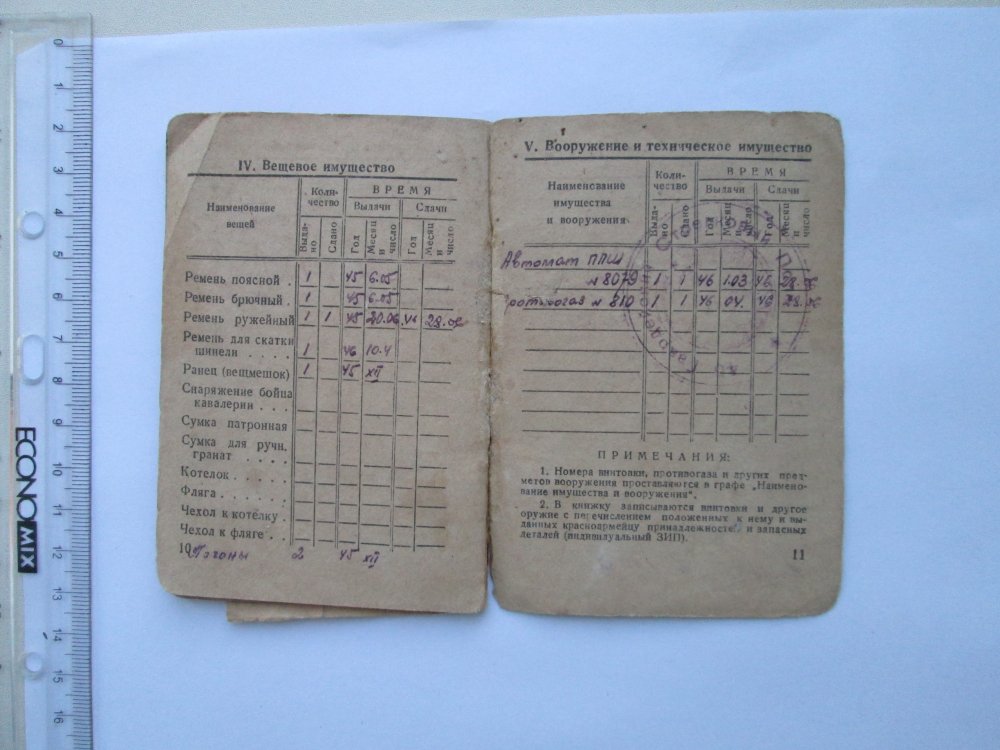 IV. Вещевое имущество
Наименование вещей
Количество
ВРЕМЯ
Выдачи
Сдачи
Выдано
Сдано
Год
Месяц и число
Год
Месяц и число
Ремень поясной . 1 45 6.05
Ремень брючный . 1 45 6.05
Ремень ружейный 1 1 45 20.06
Ремень для скатки
шинели . . . . 1 46 10.4
Ранец (вещмешок) 1 45 XII
Снаряжение бойца
кавалерии . . . .
Сумка патронная
Сумка для ручн.
гранат . . . .
Котелок . . . . .
Фляга . . . . . .
Чехол к котелку .
Чехол к фляге . .
10 Погоны 2 45 XII
V. Вооружение и техническое имущество
Наименование
имущества
и вооружения
Количество
ВРЕМЯ
Выдачи
Сдачи
Выдано
Сдано
Год
Месяц и число
Год
Месяц и число
Автомат ППШ
№ 8079 1 1 46 1.03 46
№ 810 1 1 46 04. 46
ПРИМЕЧАНИЯ:
1. Номера винтовки, противогаза и других пред-
метов вооружения проставляются в графе „Наимено-
вание имущества и вооружения".
2. В книжку записываются винтовки и другое
оружие с перечислением положенных к нему и вы-
данных красноармейцу принадлежностей и запасных
деталей (индивидуальный ЗИП).
11
ECONOMIX
0
1
2
3
4
5
6
7
8
9
10
11
12
13
14
15
16